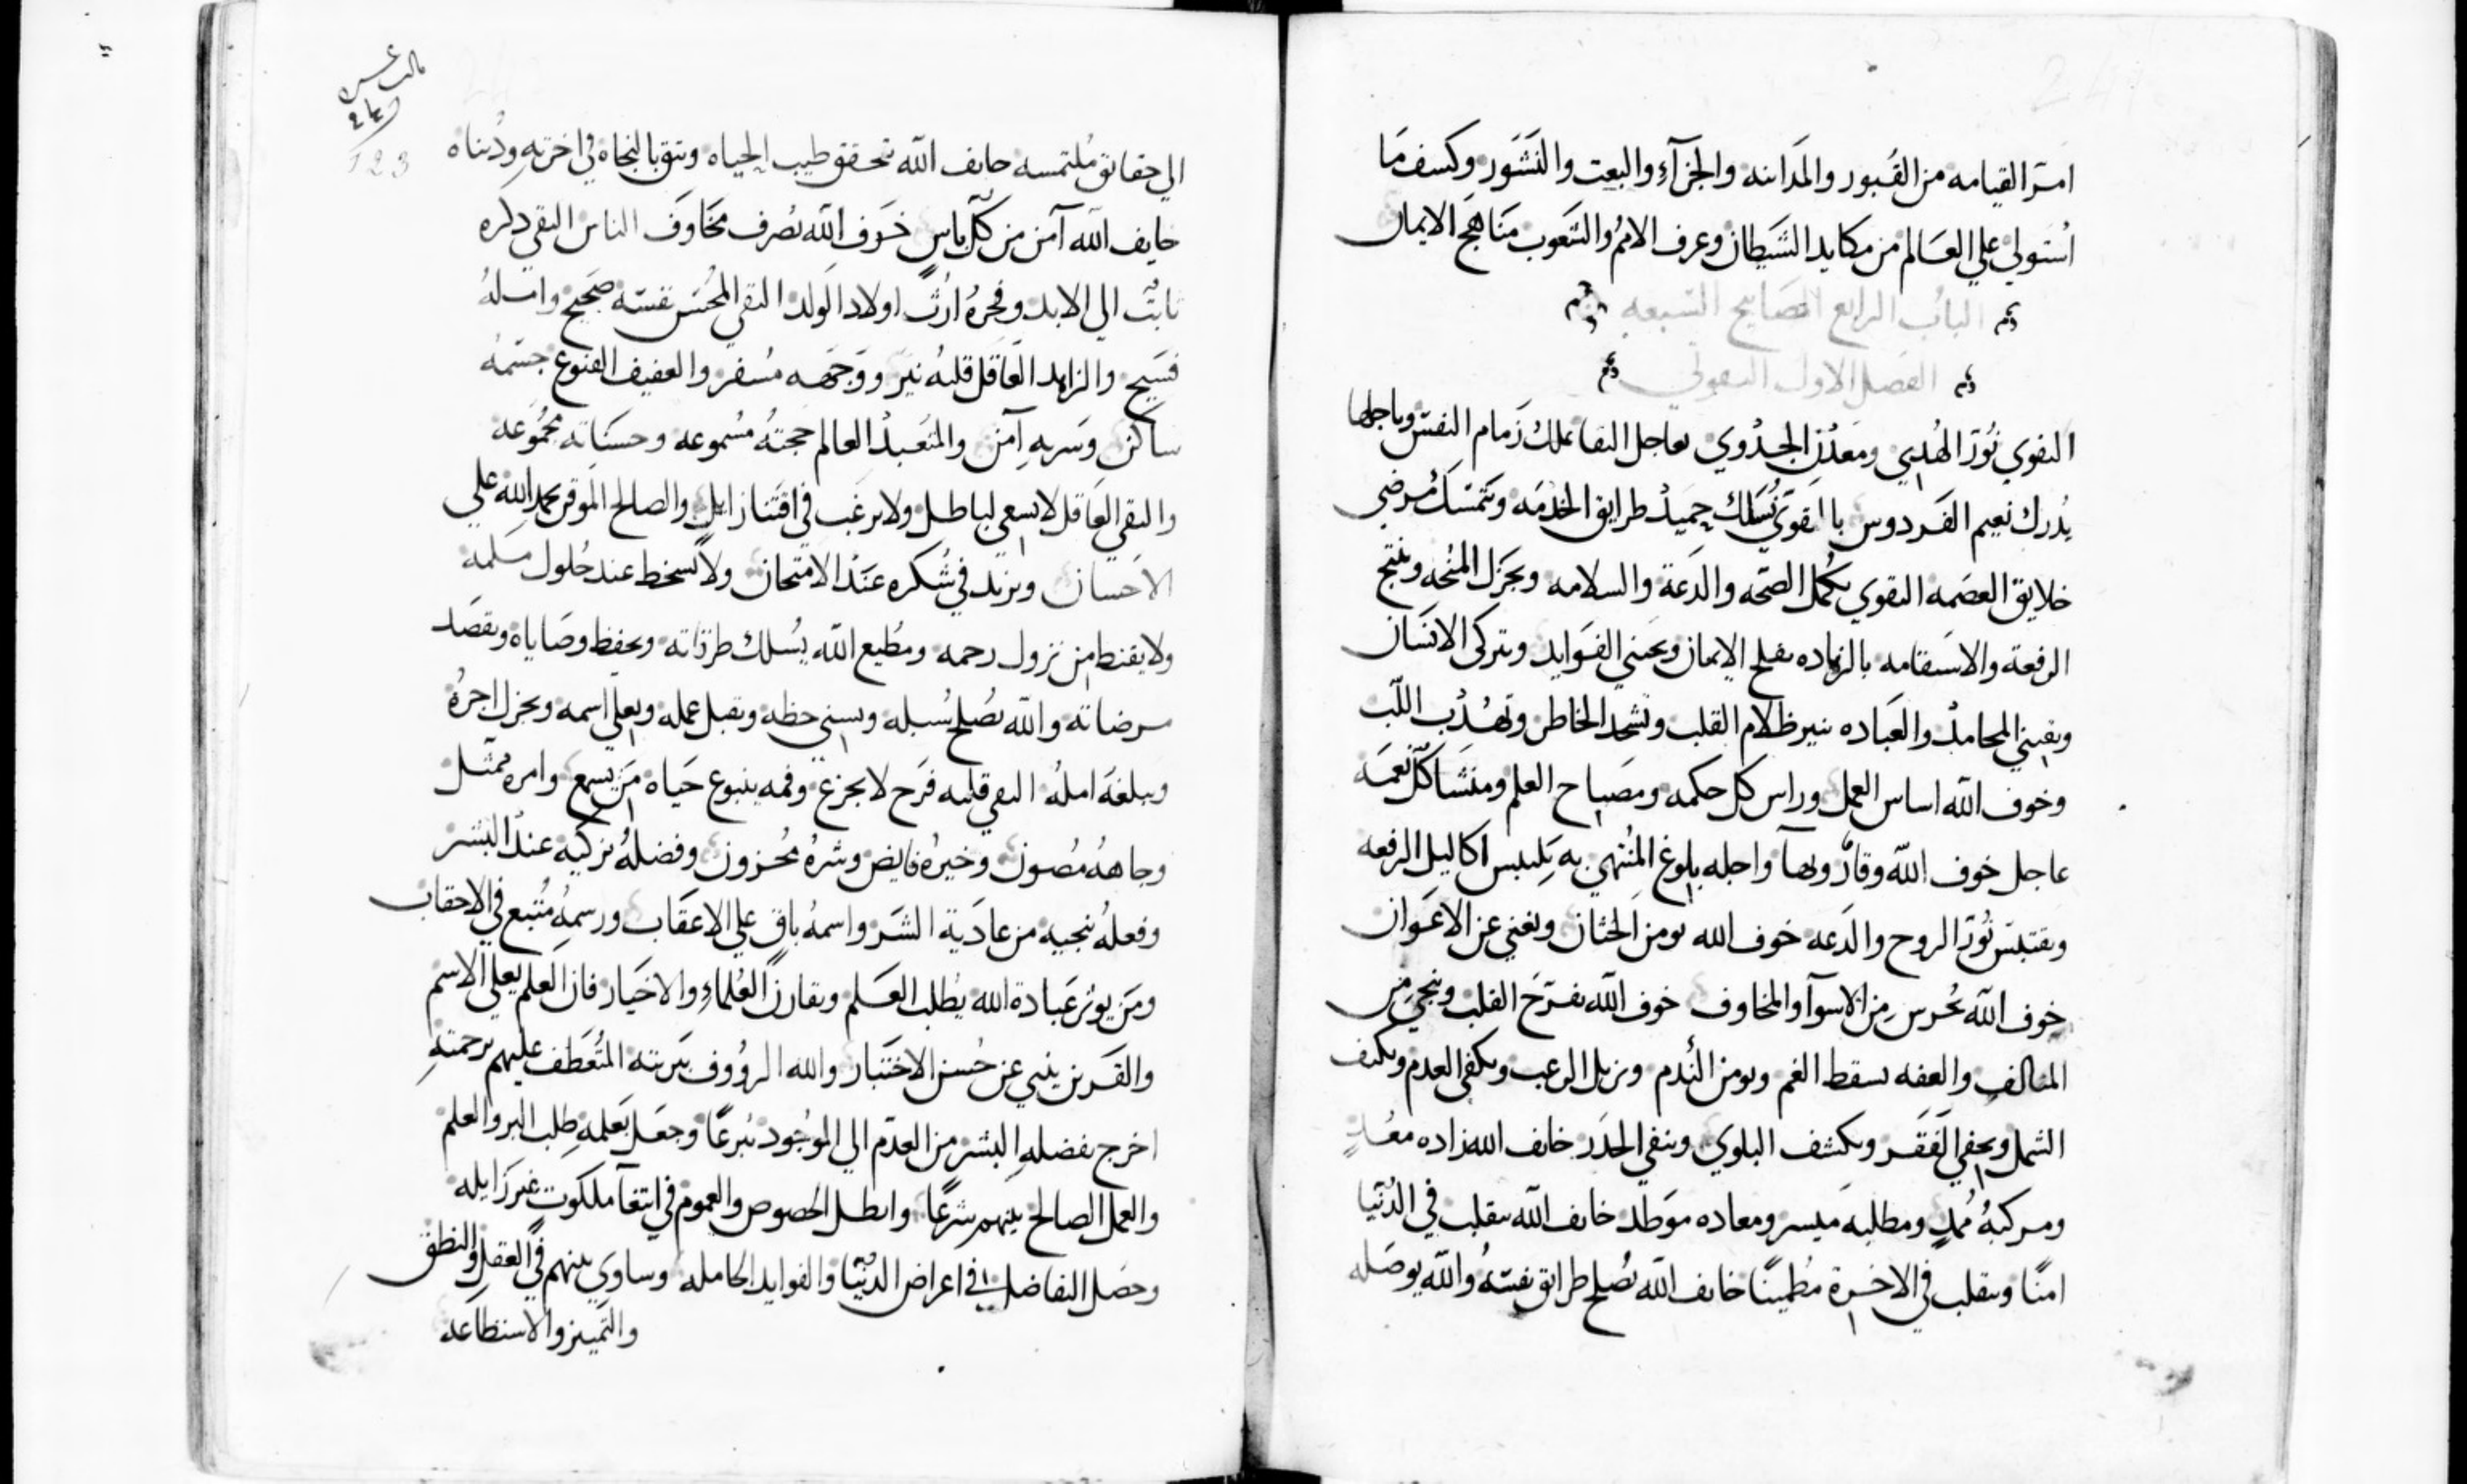 امر القيامه من القبور والمداينه والجزآء والبعت والنشور وكسف ما
استولي علي العالم من مكايد الشيطان وعرف الامم والشعوب مناهج الايمان
الباب الرابع المصابيح السبعه
الفصل الاول التقوي
التقوي نور الهدي ومعدن الجدوي بعاجل التقا تملك زمام النفس وباجلها
يدرك نعيم الفردوس بالتقوي تسلك حميد طرايق الخدمه وتتمسك مرضي
خلايق العصمه التقوي يكمل الصحه والدعة والسلامه ويجزل المنحه وينتج
الرفعة والاستقامه بالزهاده يفلح الايمان ويجني الفوايد ويتركى الانسان
ويقيني المحامد والعباده تنير ظلام القلب وتشحد الخاطر وتهذب اللب
وخوف الله اساس العمل وراس كل حكمه ومصباح العلم ومنشا كل نعمه
عاجل خوف الله وقار وبهآ واجله بلوغ المنتهي به يلبس اكاليل الرفعه
ويقتبس نور الروح والدعه خوف الله يومن الجنان ويغني عن الاعوان
خوف الله يحرس من الاسوآ والمخاوف خوف الله يفرح القلب وينجي من
المتالف والعفه تسقط الغم ويومن الندم ويزيل الرعب ويكفي العدم ويكنف
الشمل ويخفي الفقر ويكشف البلوي وينفي الحدر خايف الله زاده معد
ومركبه ممد ومطلبه ميسر ومعاده موطد خايف الله يتقلب في الدنيا
امنا ويتقلب في الاخرة مطمينا خايف الله يصلح طرايق نفسه والله يوصله
الي حقايق ملتمسه خايف الله تحقق طيب الحياه ويتق بالنجاه في اخرته ودنياه
خايف الله آمن من كل باس خوف الله يصرف مخاوف الناس التقي ذكره
ثابت الي الابد وفخره ارث اولاد الولد التقي المحسن نفسه صحيح وامله
فسيح والزاهد العاقل قلبه نير ووجهه مسفر والعفيف القنوع جسمه
ساكن وسربه آمن والمتعبد العالم حجته مسموعه وحسناته مجموعه
والتقي العاقل لا يسعي لباطل ولا يرغب في اقتنا زايل والصالح الموقن يحمد الله علي
الاحسان ويزيد في شكره عند الامتحان ولا يسخط عند حلول
ولا يقنط من نزول رحمه ومطيع الله يسلك طرقاته ويحفظ وصاياه ويقصد
مرضاته والله يصلح سبله ويسني حظه ويقبل عمله ويعلي اسمه ويجزل اجره
ويبلغه امله التقي قلبه فرح لا يجزع وفمه ينبوع حياه من يسمع وامره ممتثل
وجاهه مصون وخيره فايض وشره محزون وفضله يزكيه عند البشر
وفعله ينجيه من عادية الشر واسمه باق علي الاعقاب ورسمه متبع في الاحقاب
ومن يوثر عبادة الله يطلب العلم ويقارن العلماء والاخيار فان العلم يعلي الاسم
والقرين ينبي عن حسن الاختبار والله الرووف ببريته المتعطف عليهم برحمته
اخرج بفضله البشر من العدم الي الوجود تبرعا وجعل بعلمه طلب البر والعلم
والعمل الصالح بينهم شرعا وابطل الخصوص والعموم في ابتغآ ملكوت غير زايله
وحصل التفاضل في اعراض الدنيا والفوايد الكامله وساوي بينهم في العقل والنطق
والتمييز والاستطاعه